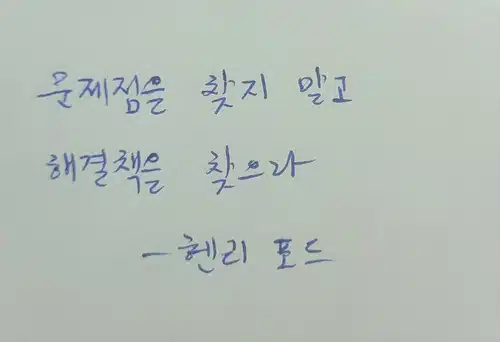 문제점을 찾지 말고
해결책을 찾으라
- 헨리 포드